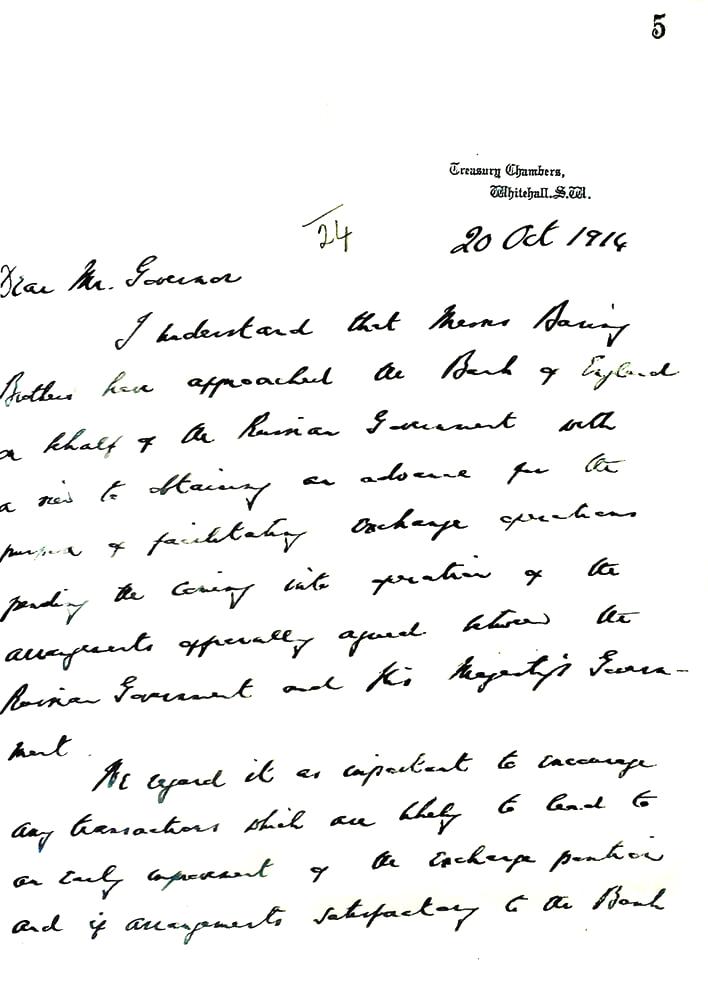 5
Treasury Chambers,
Whitehall. S.W.
24
20 Oct 1914
Dear Mr. Governor
I understand that Messrs Baring
Brothers have approached the Bank of England
on behalf of the Russian Government with
a view to obtaining an advance for the
purpose of facilitating exchange operations
pending the coming into operation of the
arrangements officially agreed between the
Russian Government and His Majesty's Govern-
ment.
We regard it as important to encourage
any transactions which are likely to lead to
an early improvement of the exchange position
and if arrangements satisfactory to the Bank